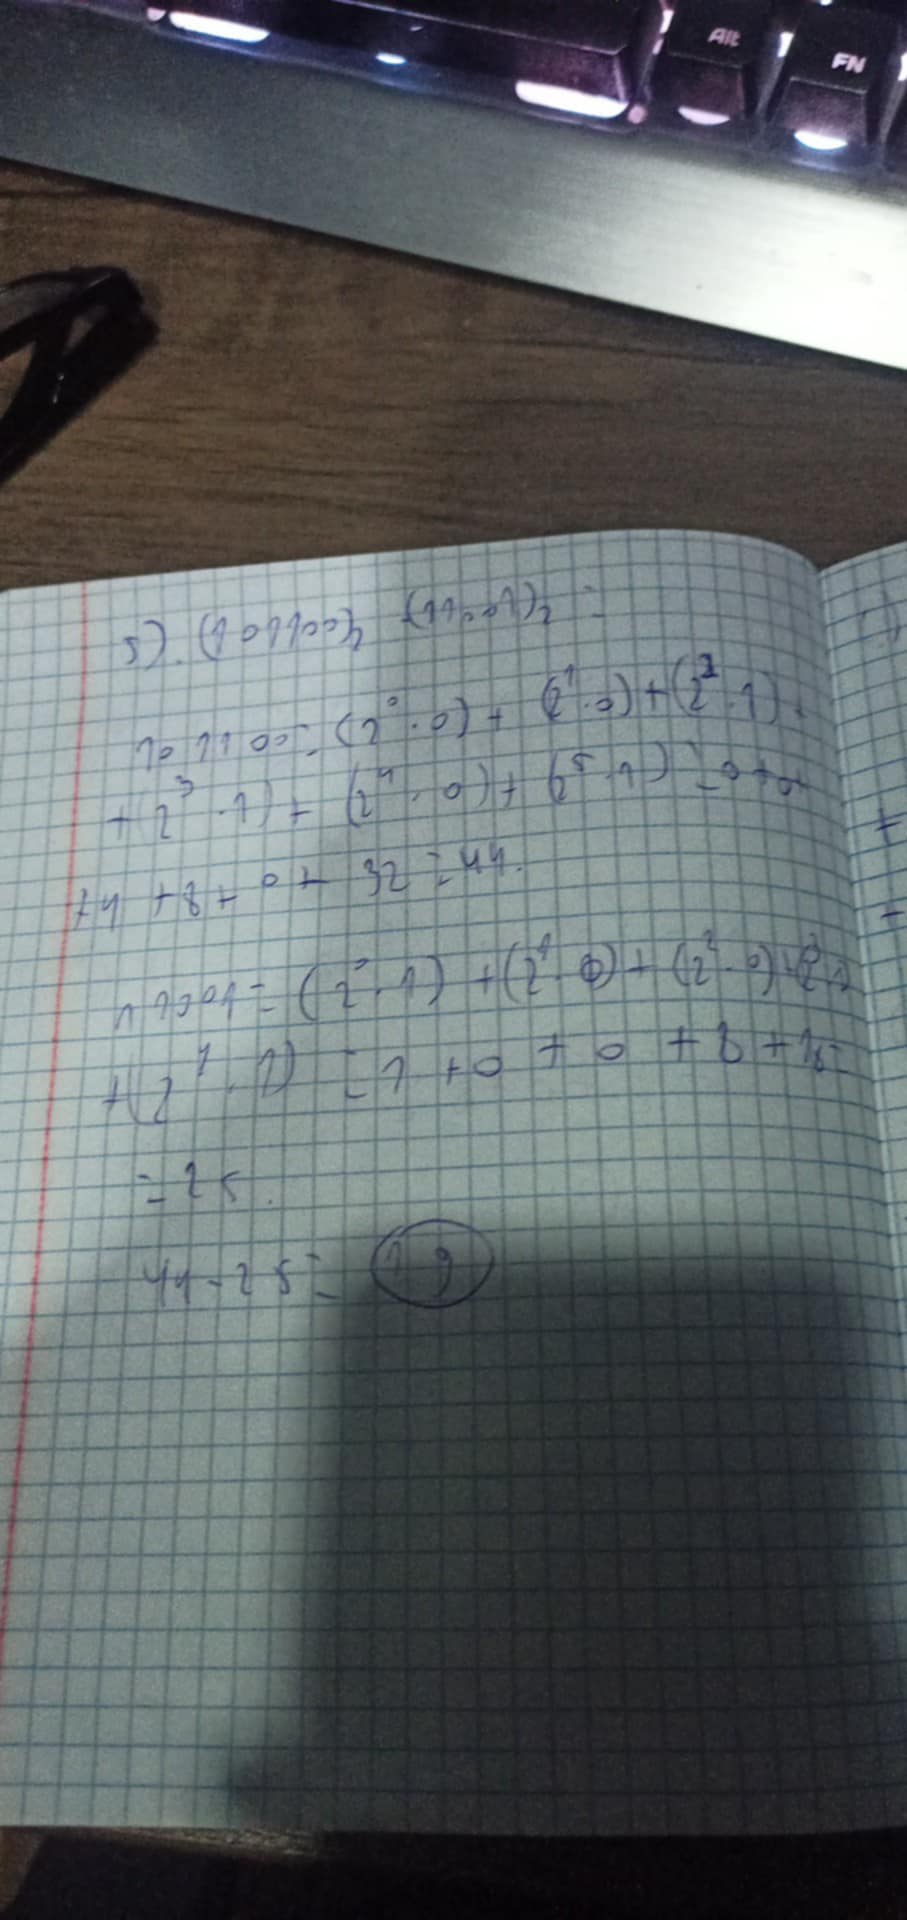 Alt
FN
5) (101100)₂ - (11001)₂ =
101100 = (2⁰·0) + (2¹·0) + (2²·1) +
+ (2³·1) + (2⁴·0) + (2⁵·1) = 0+0+
+4 +8+0+ 32 = 44.
11001 = (2⁰·1) + (2¹·0) + (2²·0)
+(2⁴·1) = 1 +0 + 0 + 8 + 16 =
= 25.
44 - 25 = 19